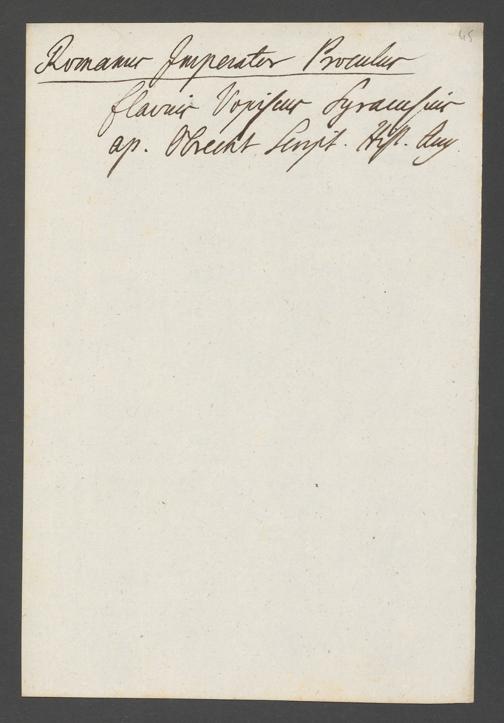 45
Romanus Imperator Proculus
Flavius Vopiscus Syracusius
ap. Obrecht Script. Hist. Aug.